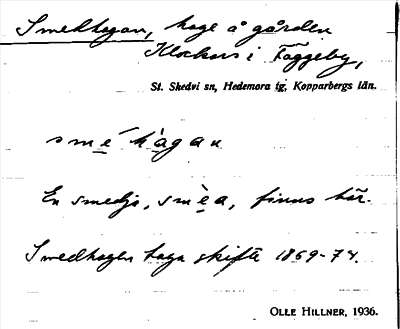 Smedhagan, hage å gården
Klockars i Fäggeby,
St. Skedvi sn, Hedemora tg, Kopparbergs län.
smé hàgan
En smedja, smèa, finns här.
Smedhagen laga skifte 1869-74.
OLLE HILLNER, 1936.